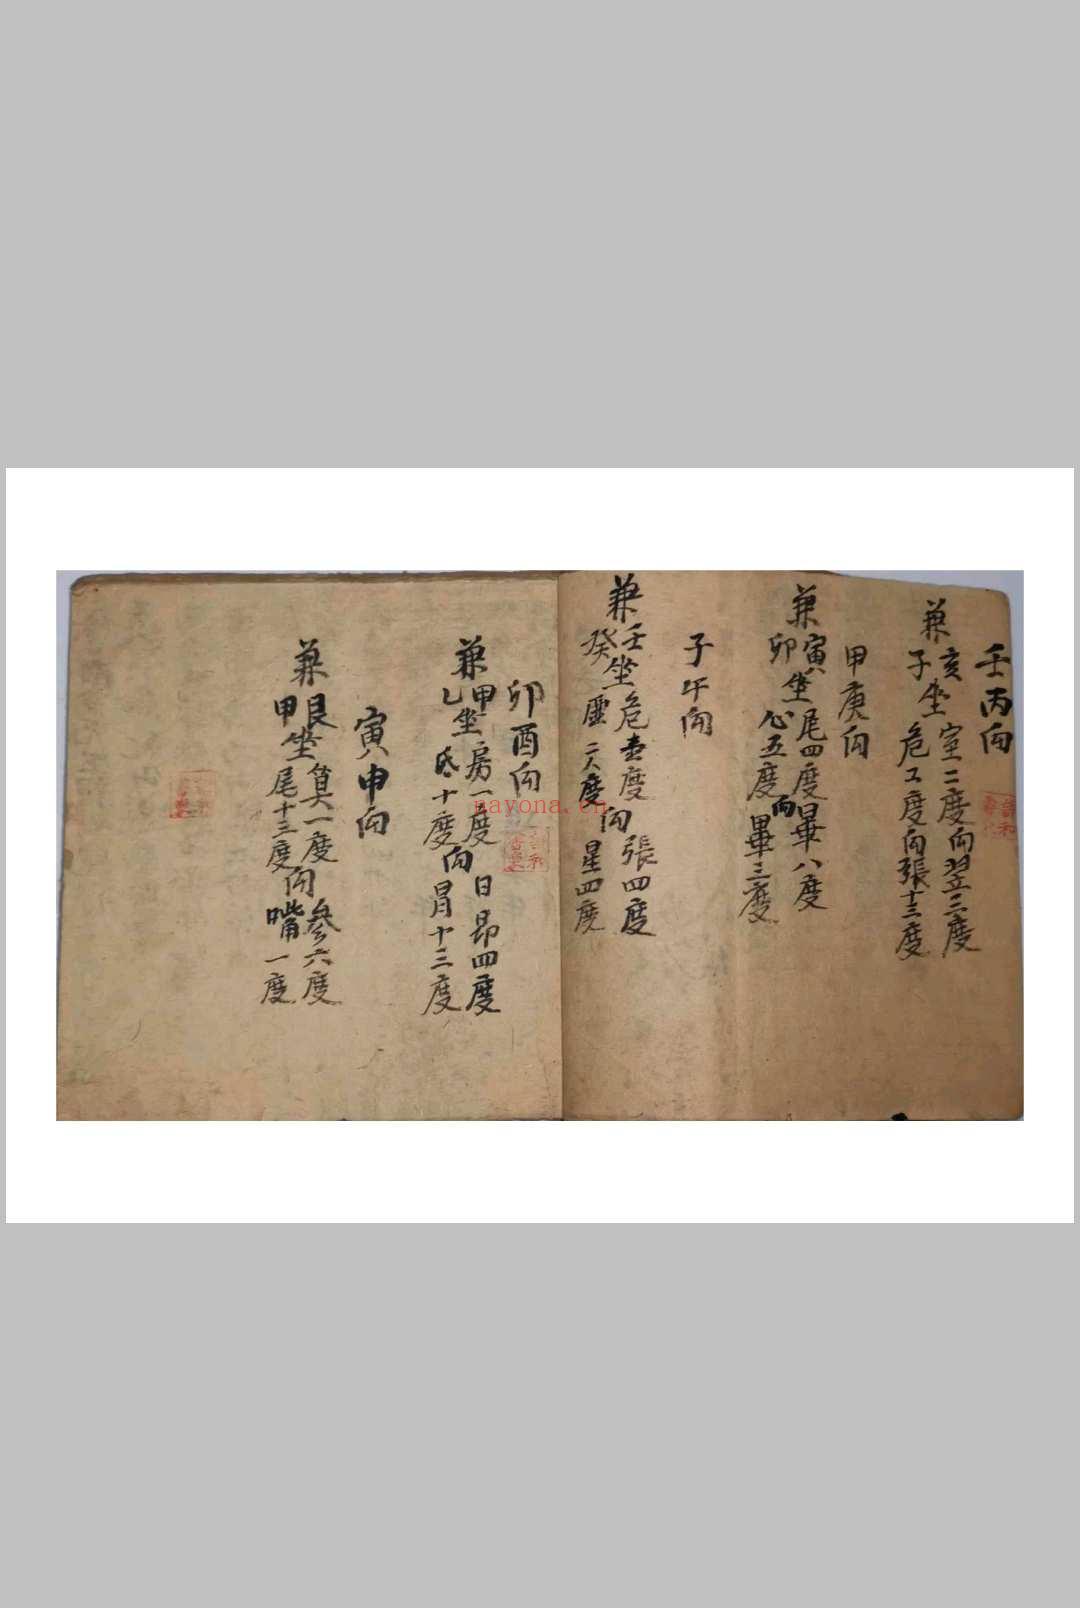 壬丙向
兼亥坐室二度向翌三度
子危工度向張十三度
甲庚向
兼寅坐尾四度向畢八度
卯心五度畢三度
子午向
兼壬坐危壹度向張四度
癸虛二度星四度
卯酉向
兼甲坐房一度向日昴四度
乙氐十度胃十三度
寅申向
兼艮坐箕一度向參六度
甲尾十三度嘴一度
nayona.cn